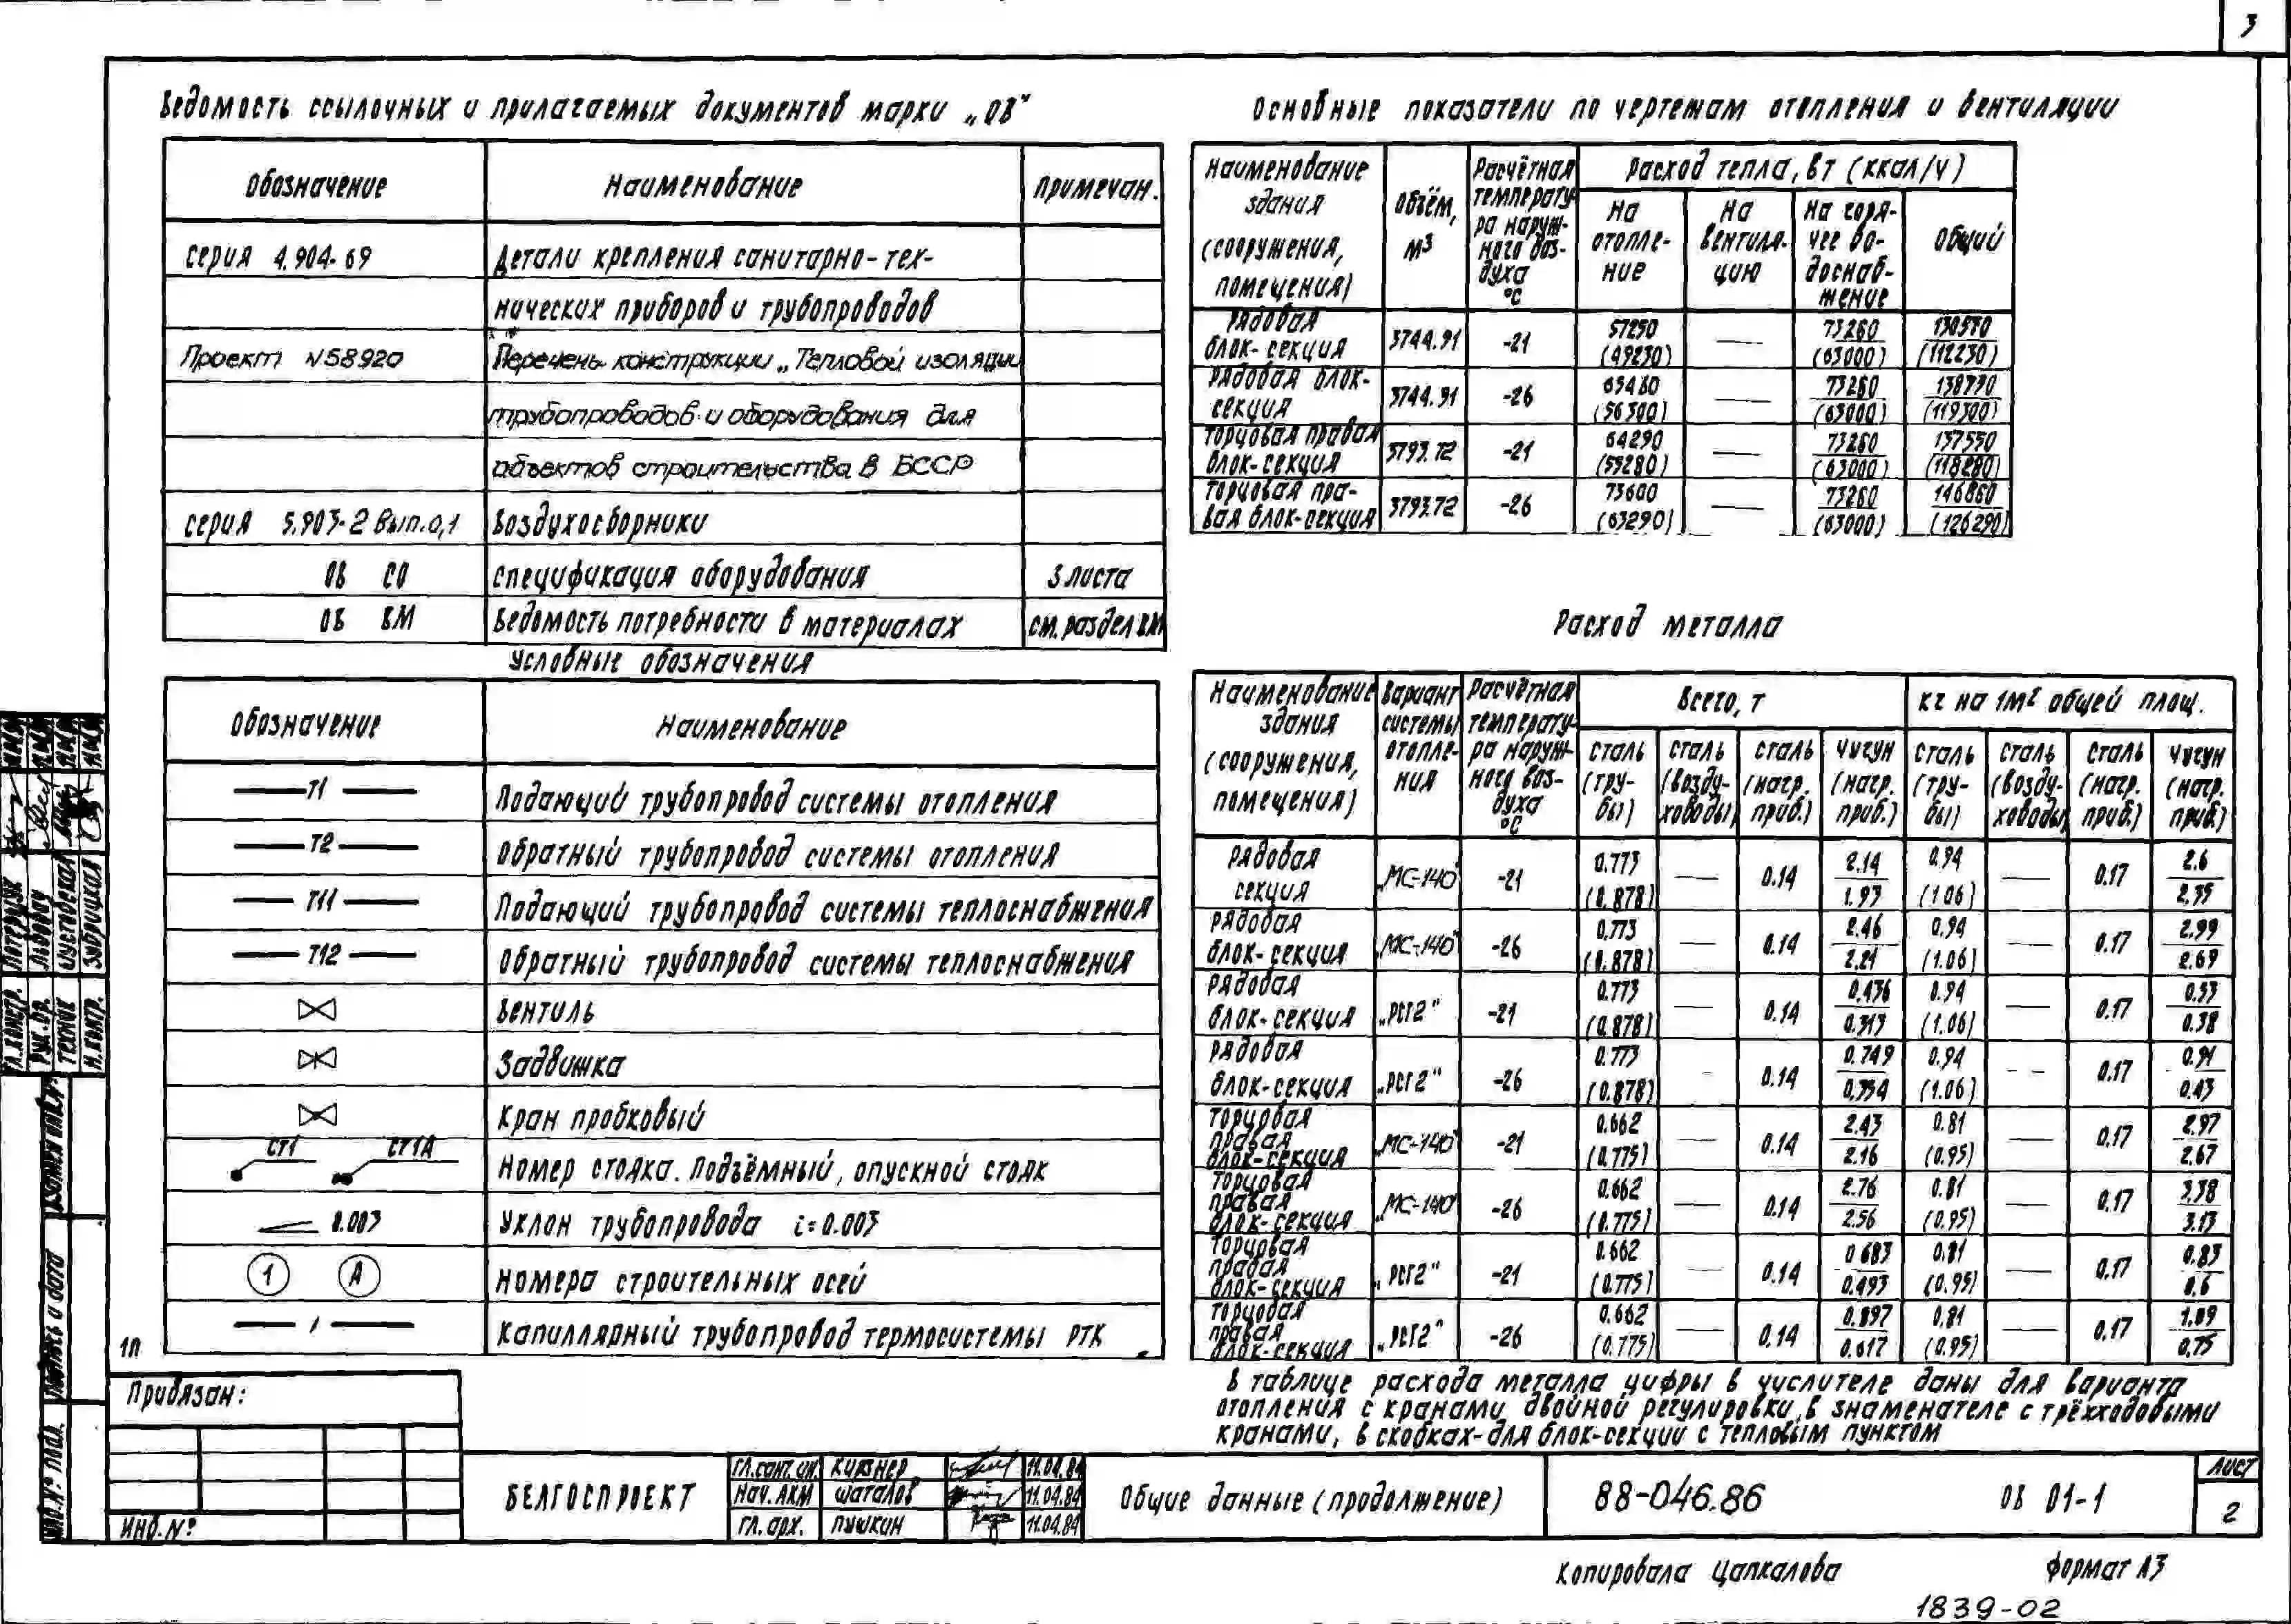 3
Ведомость ссылочных и прилагаемых документов марки „ОВ"
Обозначение Наименование Примечан.
Серия 4.904-69 Детали крепления санитарно-тех-
нических приборов и трубопроводов
Проект N58920 Перечень конструкции „Тепловой изоляции
трубопроводов и оборудования для
объектов строительства в БССР
Серия 5.903-2 Вып.0,1 Воздухосборники
ОВ СО Спецификация оборудования 3 листа
ОВ ВМ Ведомость потребности в материалах см. раздел ВМ
Условные обозначения
Обозначение Наименование
Т1 Подающий трубопровод системы отопления
Т2 Обратный трубопровод системы отопления
Т11 Подающий трубопровод системы теплоснабжения
Т12 Обратный трубопровод системы теплоснабжения
Вентиль
Задвижка
Кран пробковый
СТ1 СТ1А Номер стояка. Подъёмный, опускной стояк
0.003 Уклон трубопровода i=0.003
1 А Номера строительных осей
Капиллярный трубопровод термосистемы РТК
Основные показатели по чертежам отопления и вентиляции
Наименование здания (сооружения, помещения) Объём, м3 Расчётная температура наружного воздуха °С Расход тепла, Вт (ккал/ч)
На отопле-ние На вентиля-цию На горя-чее во-доснаб-жение Общий
Рядовая блок-секция 3744.91 -21 57250 (49230) — 73260 (63000) 130530 (112230)
Рядовая блок-секция 3744.91 -26 65480 (56300) — 73260 (63000) 138730 (119300)
Торцовая правая блок-секция 3793.72 -21 64290 (55280) — 73260 (63000) 137550 (118280)
Торцовая пра-вая блок-секция 3793.72 -26 73600 (63290) — 73260 (63000) 146860 (126290)
Расход металла
Наименование здания (сооружения, помещения) Вариант системы отопле-ния Расчётная температу-ра наруж-ного воз-духа °С Всего, т кг на 1м2 общей площ.
Сталь (тру-бы) Сталь (возду-ховоды) Сталь (нагр. приб.) Чугун (нагр. приб.) Сталь (тру-бы) Сталь (возду-ховоды) Сталь (нагр. приб.) Чугун (нагр. приб.)
Рядовая секция „МС-140" -21 0.773 (0.878) — 0.14 2.14 1.93 0.94 (1.06) — 0.17 2.6 2.35
Рядовая блок-секция „МС-140" -26 0.773 (0.878) — 0.14 2.46 2.21 0.94 (1.06) — 0.17 2.99 2.69
Рядовая блок-секция „РСГ2" -21 0.773 (0.878) — 0.14 0.436 0.313 0.94 (1.06) — 0.17 0.53 0.38
Рядовая блок-секция „РСГ2" -26 0.773 (0.878) — 0.14 0.749 0.354 0.94 (1.06) — 0.17 0.91 0.43
Торцовая правая блок-секция „МС-140" -21 0.662 (0.775) — 0.14 2.43 2.16 0.81 (0.95) — 0.17 2.97 2.67
Торцовая правая блок-секция „МС-140" -26 0.662 (0.775) — 0.14 2.76 2.56 0.81 (0.95) — 0.17 3.38 3.13
Торцовая правая блок-секция „РСГ2" -21 0.662 (0.775) — 0.14 0.683 0.493 0.81 (0.95) — 0.17 0.83 0.6
Торцовая правая блок-секция „РСГ2" -26 0.662 (0.775) — 0.14 0.897 0.617 0.81 (0.95) — 0.17 1.09 0.75
В таблице расхода металла цифры в числителе даны для варианта
отопления с кранами двойной регулировки, в знаменателе с трёхходовыми
кранами, в скобках-для блок-секции с тепловым пунктом
1п
Привязан:
Инв.№
БЕЛГОСПРОЕКТ
Гл.сант.ин. Кирзнер 11.04.84
Нач.АКМ Шаталов 11.04.84
Гл. арх. Пушкин 11.04.84
Общие данные (продолжение)
88-046.86
ОВ 01-1
Лист
2
Копировала Цапкалова
Формат А3
1839-02
Гл.констр.
Рук.гр. Львову
Техник
Н.контр. Забрицкая
Взамен инв.№
Подпись и дата
Инв.№ подл.